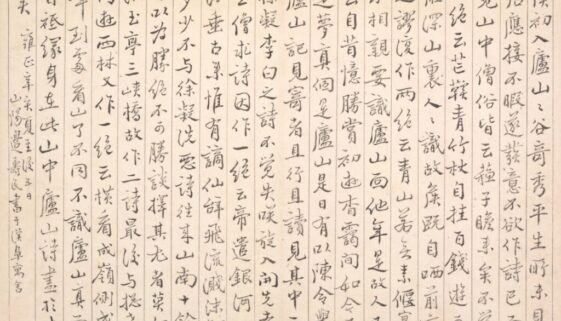 僕初入廬山々谷奇秀平生所未見
應接不暇遂發意不欲作詩已
見山中僧俗皆云蘇子瞻來矣不覺
絕云芒鞵青竹杖自挂百錢遊
深山裏人々識故侯既自哂前
之謬復作兩絕云青山若無素偃蹇
不相親要識廬山面他年是故人
自昔憶勝賞初遊杳靄間如今
是夢真個是廬山是日有以陳令舉
廬山記見寄者且行且讀見其中
徐凝李白之詩不覺失咲旋入開先
主僧求詩因作一絕云帝遣銀河
派垂古來惟有謫仙辭飛流濺沫
多少不與徐凝洗惡詩往來山南十餘
以為勝絕不可勝談擇其尤者莫
玉亭三峽橋故作二詩最後与摠
同遊西林又作一絕云橫看成嶺側成
到處看山了不同不識廬山真
目祇緣身在此山中廬山詩盡於
矣 雍正辛亥夏至後五日
山陽邊壽民書于漢皋寓舍